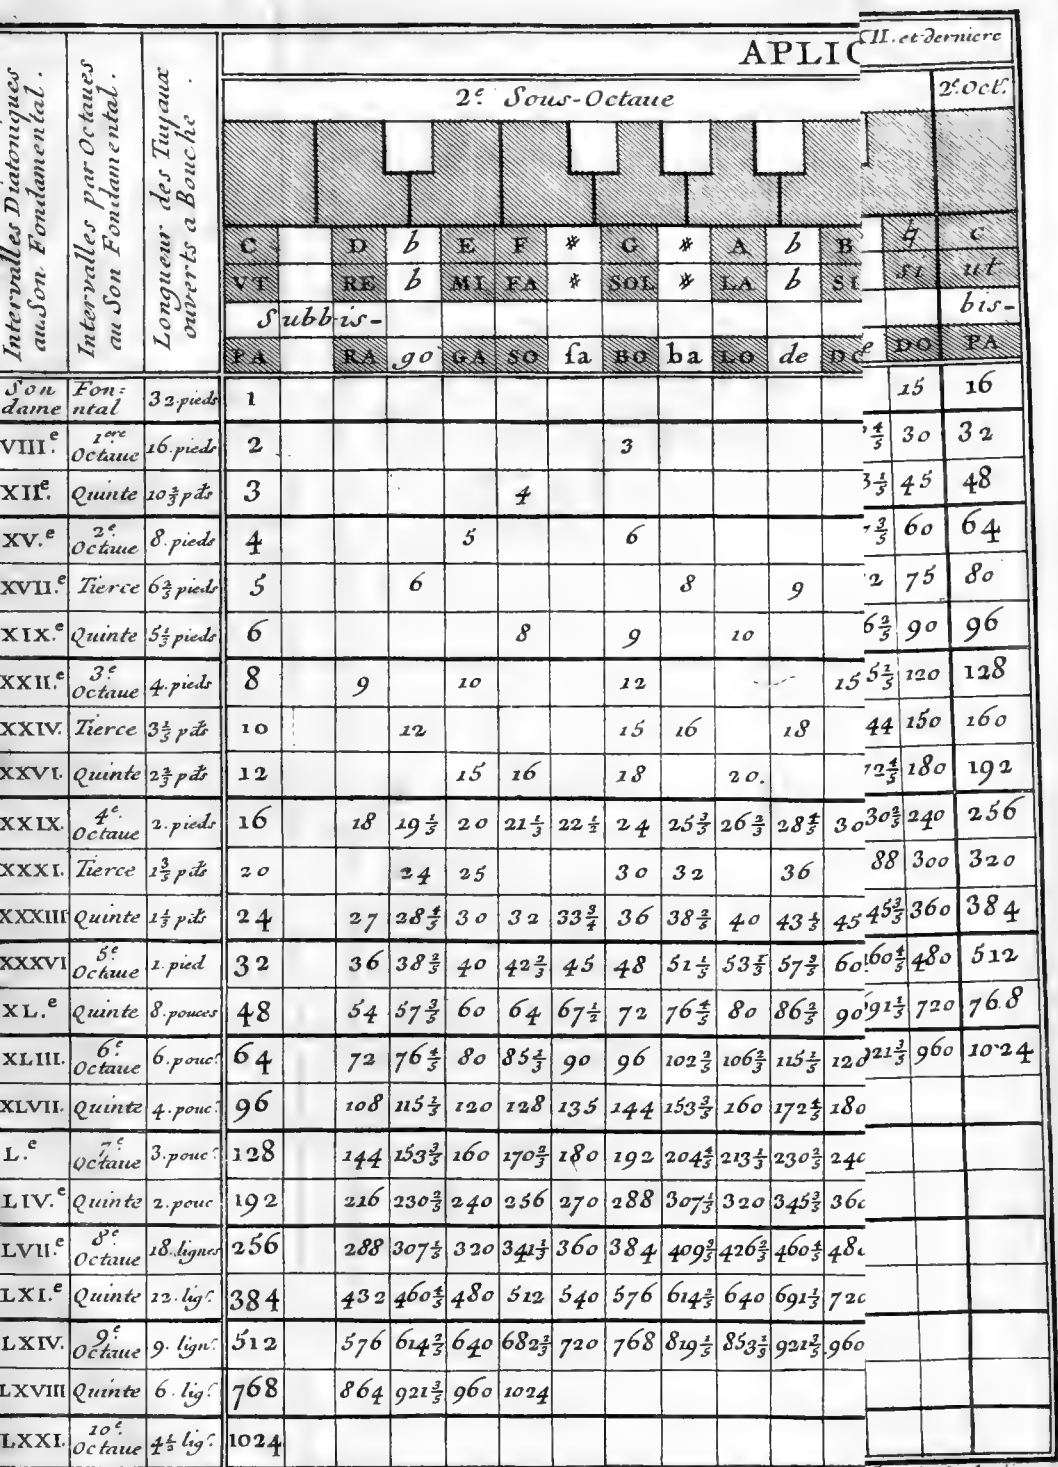 CII. et derniere
APLIC
Intervalles Diatoniques
au Son Fondamental.
Intervalles par Octaues
au Son Fondamental.
Longueur des Tuyaux
ouverts a Bouche.
2.e Sous-Octaue
2.e Oct.
C D b E F * G * A b B ♮ C
VT RE b MI FA * SOL * LA b SI si ut
Subbis- bis-
PA RA go GA SO fa BO ba LO de DO PA
Son Fon: 32. pieds 1 15 16
dame ntal
VIII.e 1ere Octaue 16. pieds 2 3 4/5 30 32
XII.e Quinte 10 2/3 pds 3 4 3 1/5 45 48
XV.e 2.e Octaue 8. pieds 4 5 6 3/5 60 64
XVII.e Tierce 6 2/5 pieds 5 6 8 9 2 75 80
XIX.e Quinte 5 1/3 pieds 6 8 9 10 6 2/5 90 96
XXII.e 3.e Octaue 4. pieds 8 9 10 12 15 5 1/5 120 128
XXIV. Tierce 3 1/5 pds 10 12 15 16 18 44 150 160
XXVI. Quinte 2 2/3 pds 12 15 16 18 20. 72 4/5 180 192
XXIX. 4.e Octaue 2. pieds 16 18 19 1/5 20 21 1/3 22 1/2 24 25 3/5 26 2/3 28 4/5 30 30 2/5 240 256
XXXI. Tierce 1 3/5 pds 20 24 25 30 32 36 88 300 320
XXXIII Quinte 1 1/3 pds 24 27 28 4/5 30 32 33 3/4 36 38 2/5 40 43 1/5 45 45 3/5 360 384
XXXVI 5.e Octaue 1. pied 32 36 38 2/5 40 42 2/3 45 48 51 1/5 53 1/3 57 3/5 60 60 4/5 480 512
XL.e Quinte 8. pouces 48 54 57 3/5 60 64 67 1/2 72 76 4/5 80 86 2/5 90 91 1/5 720 768
XLIII. 6.e Octaue 6. pouc. 64 72 76 4/5 80 85 1/3 90 96 102 2/5 106 2/3 115 1/5 120 21 3/5 960 1024
XLVII. Quinte 4. pouc. 96 108 115 1/5 120 128 135 144 153 3/5 160 172 4/5 180
L.e 7.e Octaue 3. pouc. 128 144 153 3/5 160 170 2/3 180 192 204 4/5 213 1/3 230 2/5 240
LIV.e Quinte 2. pouc 192 216 230 2/5 240 256 270 288 307 1/5 320 345 3/5 360
LVII.e 8.e Octaue 18. lignes 256 288 307 1/5 320 341 1/3 360 384 409 3/5 426 2/3 460 4/5 480
LXI.e Quinte 12. lig. 384 432 460 4/5 480 512 540 576 614 2/5 640 691 1/5 720
LXIV. 9.e Octaue 9. lign. 512 576 614 2/5 640 682 2/3 720 768 819 1/5 853 1/3 921 3/5 960
LXVIII Quinte 6. lig. 768 864 921 3/5 960 1024
LXXI. 10.e Octaue 4 1/2 lig. 1024